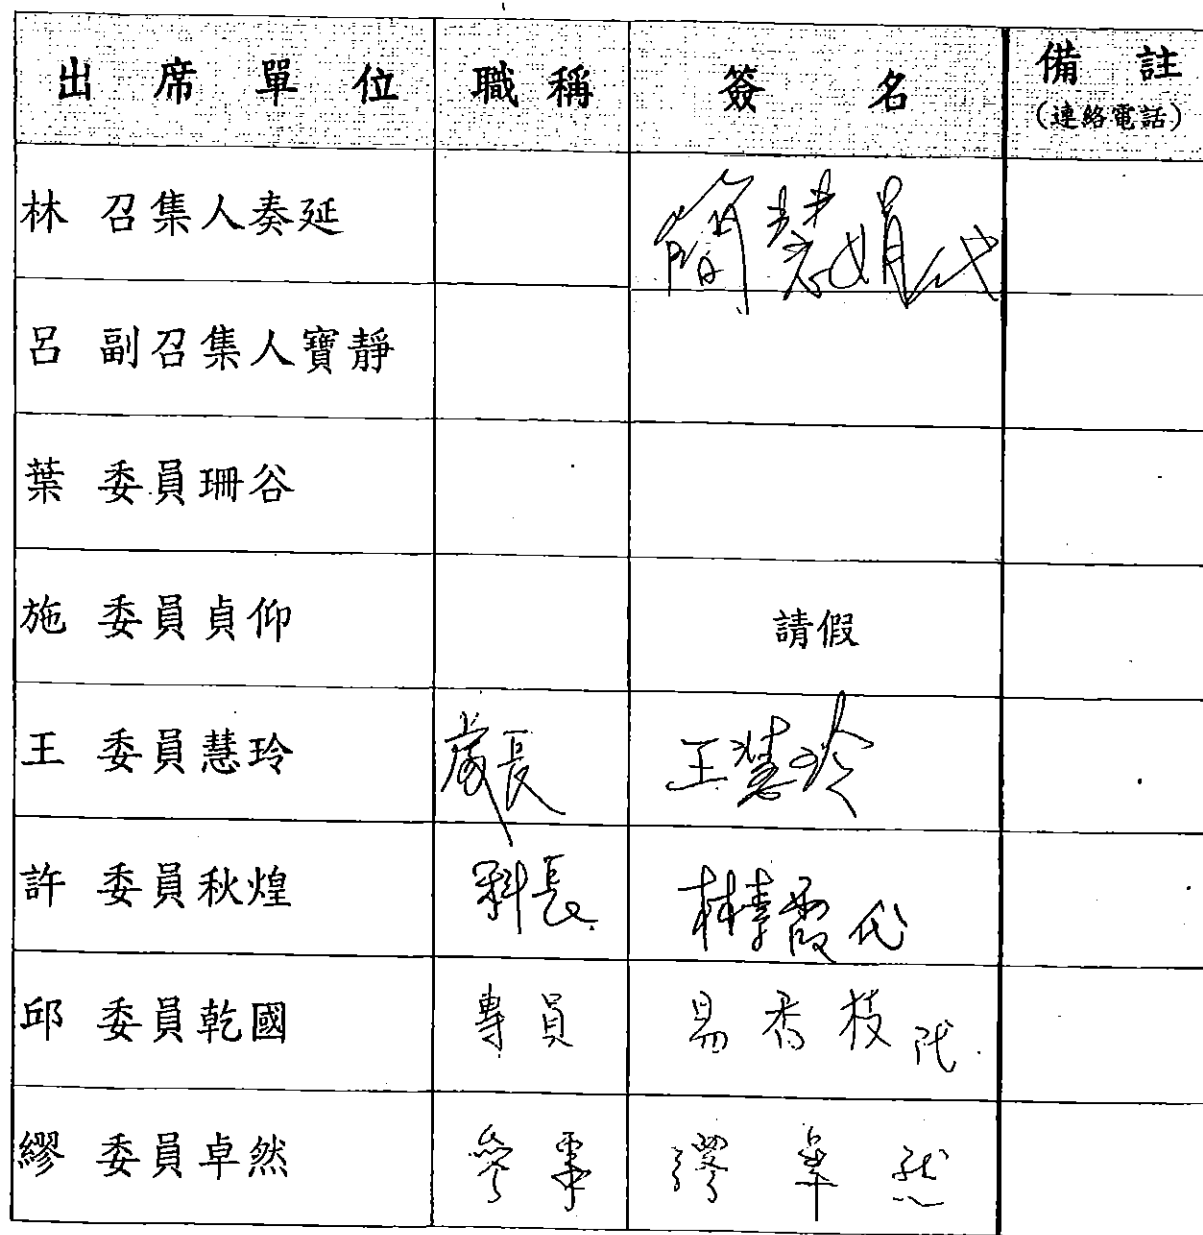 出席單位 職稱 簽名 備註
(連絡電話)
林 召集人奏延 簡慧娟代
呂 副召集人寶靜
葉 委員珊谷
施 委員貞仰 請假
王 委員慧玲 處長 王慧玲
許 委員秋煌 科長 林青霞代
邱 委員乾國 專員 易秀枝代
繆 委員卓然 參事 繆卓然